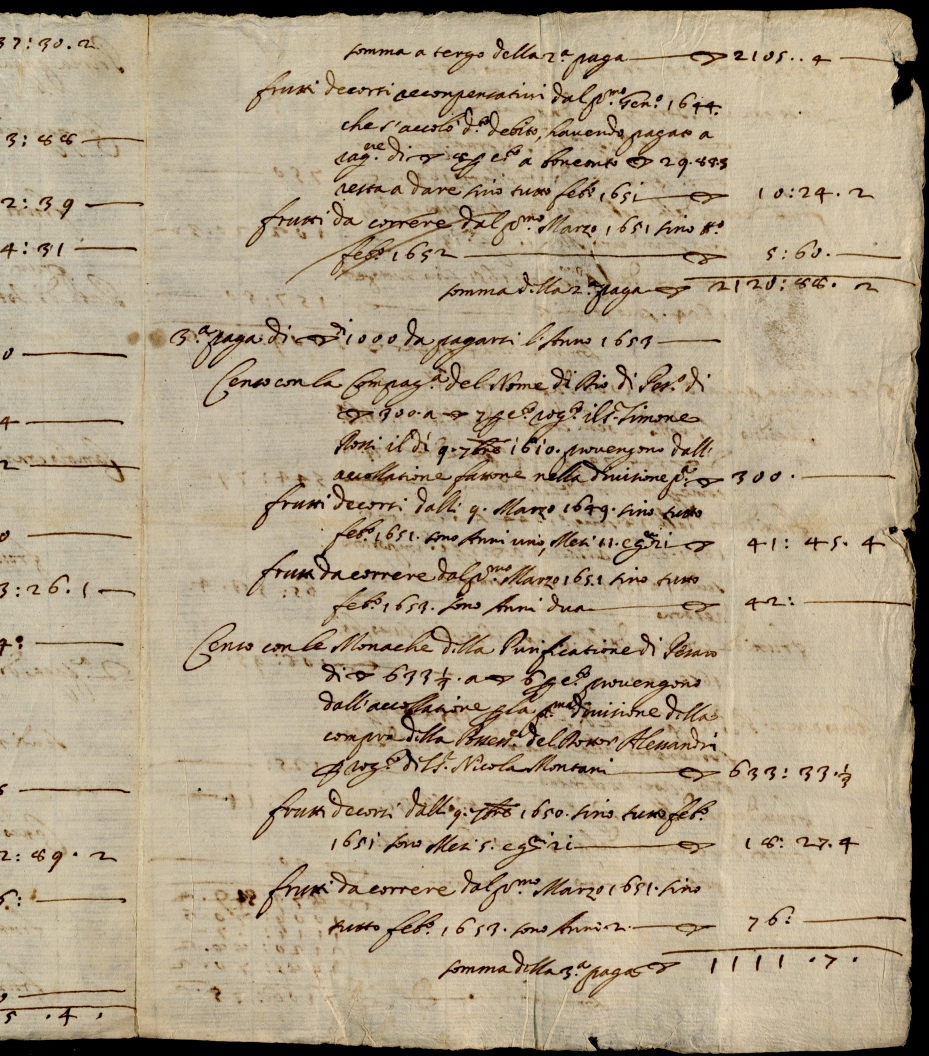 37:30.2
3:88
2:39
4:31
0
4
2
0
3:26.1
4:
5
2:89.2
6:
0
5.4.
somma a tergo della 2.ª paga 2105..4
frutti decorsi recompensativi dal p.mo Gen.o 1644
che s'accolò d.o debito, havendo pagato a
rag.ne di 8 p c.to a bonconto 29.88.3
resta a dare sino tutto feb.o 1651 10:24.2
frutti da correre dal p.mo Marzo 1651 sino tt.o
feb.o 1652 5:60.
somma della 2.ª paga 2120:88.2
3.ª paga di 1000 da pagarsi l'Anno 1653
Censo con la Compag.a del Nome di Dio di Pes.o di
300. a 7 p c.o rog.o il S. Simone
Rossi il dì 9. 7bre 1610. provengono dall'
accollatione fattone nella divisione p.a 300.
frutti decorsi dalli 9. Marzo 1649. sino tutto
feb.o 1651. sono Anni uno, Mesi 11. e g.ni 21 41:45.4
frutti da correre dal p.mo Marzo 1651 sino tutto
feb.o 1653. sono Anni dua 42:
Censo con le Monache della Purificatione di Pesaro
di 633 1/3. a 6 p c.o provengono
dall'accollatione p la p.ma divisione della
compra della Possess.e del Dottor Alessandri
p rog.o del S. Nicola Montani 633:33.1/3
frutti decorsi dalli 9. 7bre 1650. sino tutto feb.o
1651 sono Mesi 5. e g.ni 21 18:27.4
frutti da correre dal p.mo Marzo 1651. sino
tutto feb.o 1653. sono Anni 2. 76:
somma della 3.ª paga 1111.7.